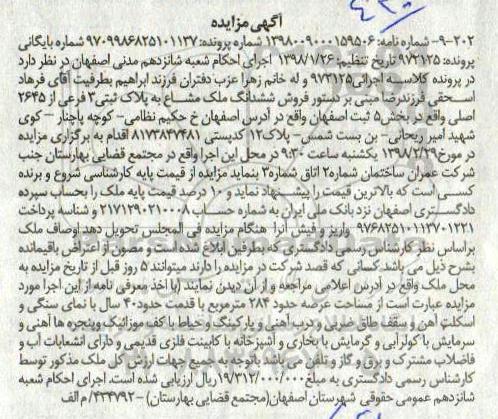 آگهی مزایده
۹-۲۰۲- شماره نامه: ۱۳۹۸۰۰۹۰۰۰۱۵۹۵۰۶ شماره پرونده: ۹۷۰۹۹۸۶۸۲۵۱۰۱۱۳۷ شماره بایگانی
پرونده: ۹۷۲۱۲۵ تاریخ تنظیم: ۱۳۹۸/۱/۲۶ اجرای احکام شعبه شانزدهم مدنی اصفهان در نظر دارد
در پرونده کلاسه اجرائی۹۷۲۱۲۵ و له خانم زهرا عزب دفتران فرزند ابراهیم بطرفیت آقای فرهاد
اسحقی فرزندرضا مبنی بر دستور فروش ششدانگ ملک مشاع به پلاک ثبتی۳ فرعی از ۲۶۴۵
اصلی واقع در بخش۵ ثبت اصفهان واقع در آدرس اصفهان خ حکیم نظامی- کوچه پاچنار –کوی
شهید امیر ریحانی- بن بست شمس- پلاک۱۲ کدپستی ۸۱۷۳۸۳۷۴۸۱ اقدام به برگزاری مزایده
در مورخ۱۳۹۸/۲/۲۹ یکشنبه ساعت ۹:۳۰ در محل این اجرا واقع در مجتمع قضایی بهارستان جنب
شرکت عمران ساختمان شماره۲ اتاق شماره۳ بنماید مزایده از قیمت پایه کارشناسی شروع و برنده
کسی است که بالاترین قیمت را پیشنهاد نماید و ۱۰ درصد قیمت پایه ملک را بحساب سپرده
دادگستری اصفهان نزد بانک ملی ایران به شماره حساب ۲۱۷۱۲۹۰۲۱۰۰۰۸ و شناسه پرداخت
۹۷۶۸۲۵۱۰۱۱۳۷۰۱۲۲۱ واریز و فیش آنرا هنگام مزایده فی المجلس تحویل دهد اوصاف ملک
براساس نظر کارشناس رسمی دادگستری که بطرفین ابلاغ شده است و مصون از اعتراض باقیمانده
بشرح ذیل می باشد.کسانی که قصد شرکت در مزایده را دارند میتوانند ۵ روز قبل از تاریخ مزایده به
محل ملک واقع در آدرس اعلامی مراجعه و از آن دیدن نمایند (با اخذ معرفی نامه از این اجرا) مورد
مزایده عبارت است از مساحت عرصه حدود ۲۸۴ مترمربع با قدمت حدود۴۰ سال با نمای سنگی و
اسکلت آهن و سقف طاق ضربی و درب آهنی و پارکینگ و حیاط با کف موزائیک وپنجره ها آهنی و
سرمایش با کولر آبی و گرمایش با بخاری و آشپزخانه با کابینت فلزی قدیمی و دارای انشعابات آب و
فاضلاب مشترک و برق و گاز و تلفن می باشد باتوجه به جمیع جهات ارزش کل ملک مذکور توسط
کارشناس رسمی دادگستری به مبلغ۱۹/۳۱۲/۰۰۰/۰۰۰ریال ارزیابی شده است. اجرای احکام شعبه
شانزدهم عمومی حقوقی شهرستان اصفهان(مجتمع قضایی بهارستان) -۴۳۴۷۹۲/ م الف